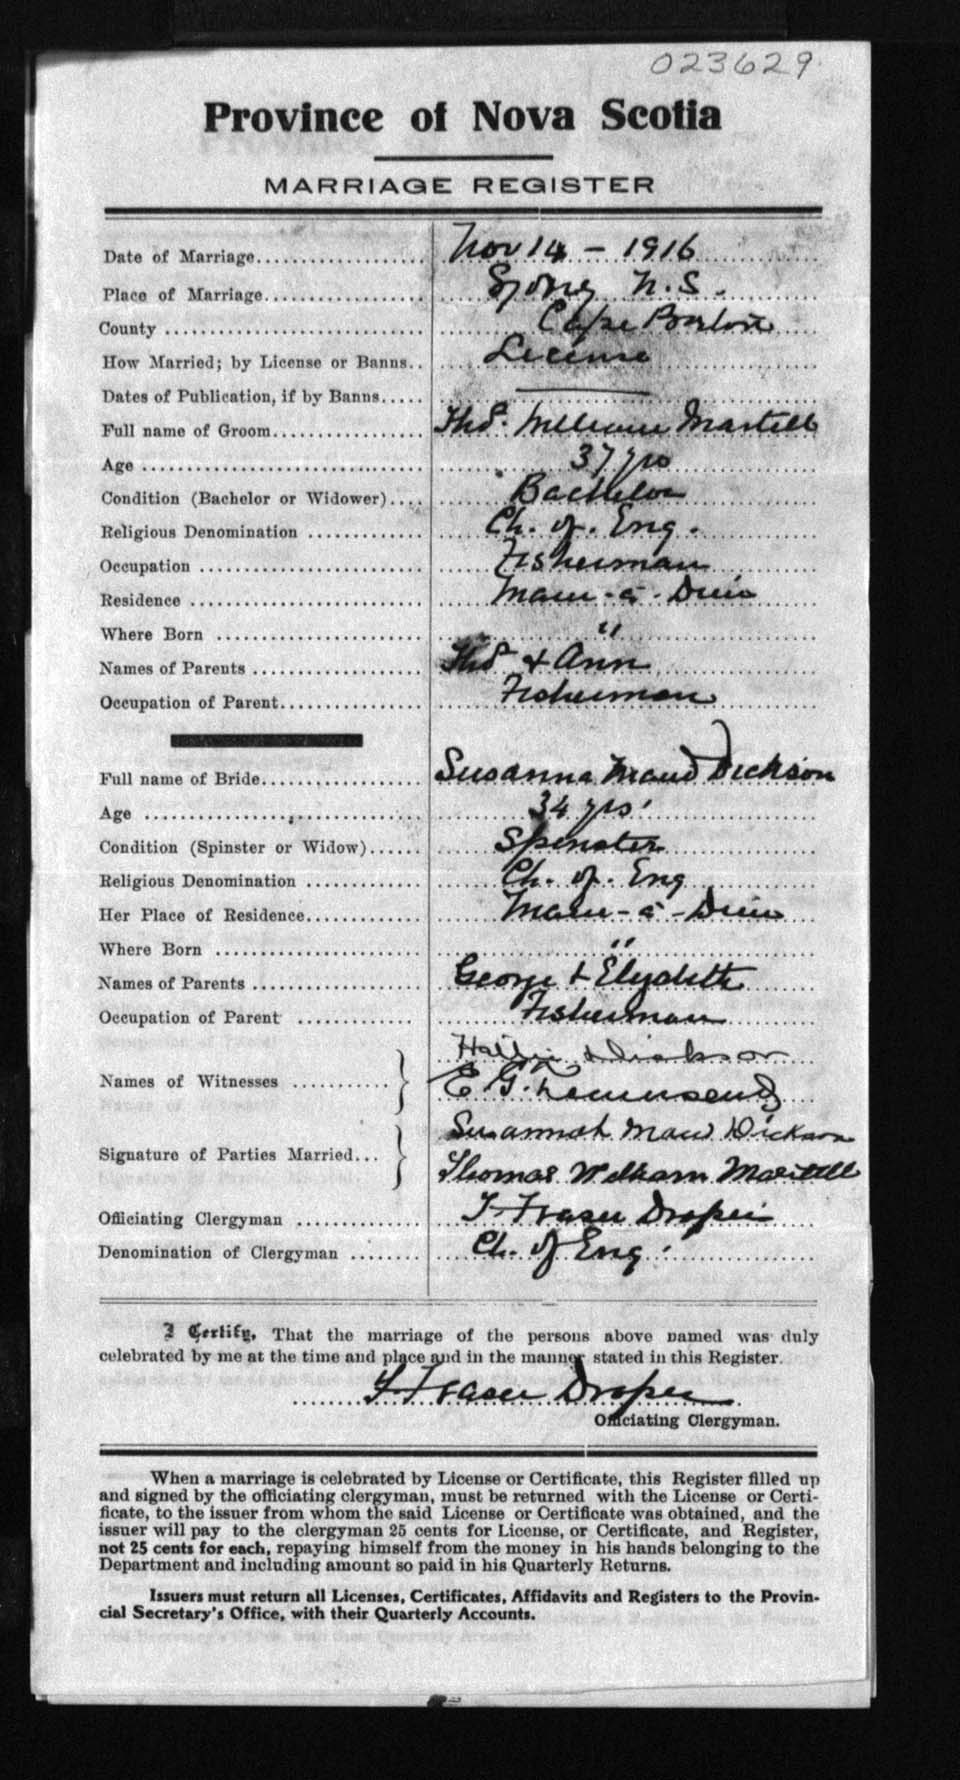 023629
Province of Nova Scotia
MARRIAGE REGISTER
Date of Marriage Nov 14 - 1916
Place of Marriage Sydney N.S.
County Cape Breton
How Married; by License or Banns License
Dates of Publication, if by Banns
Full name of Groom Thos. William Martell
Age 37 yrs
Condition (Bachelor or Widower) Bachelor
Religious Denomination Ch. of. Eng.
Occupation Fisherman
Residence Main-à-Dieu
Where Born "
Names of Parents Thos & Ann
Occupation of Parent Fisherman
Full name of Bride Susanna Maud Dickson
Age 34 yrs
Condition (Spinster or Widow) Spinster
Religious Denomination Ch. of. Eng
Her Place of Residence Main-à-Dieu
Where Born "
Names of Parents George &
Occupation of Parent Fisherman
Dickson
Names of Witnesses E G. Townsend
Susannah Maud Dickson
Signature of Parties Married Thomas William Martell
Officiating Clergyman T Fraser Draper
Denomination of Clergyman Ch. of Eng.
I Certify, That the marriage of the persons above named was duly
celebrated by me at the time and place and in the manner stated in this Register.
T Fraser Draper
Officiating Clergyman.
When a marriage is celebrated by License or Certificate, this Register filled up
and signed by the officiating clergyman, must be returned with the License or Certi-
ficate, to the issuer from whom the said License or Certificate was obtained, and the
issuer will pay to the clergyman 25 cents for License, or Certificate, and Register,
not 25 cents for each, repaying himself from the money in his hands belonging to the
Department and including amount so paid in his Quarterly Returns.
Issuers must return all Licenses, Certificates, Affidavits and Registers to the Provin-
cial Secretary's Office, with their Quarterly Accounts.